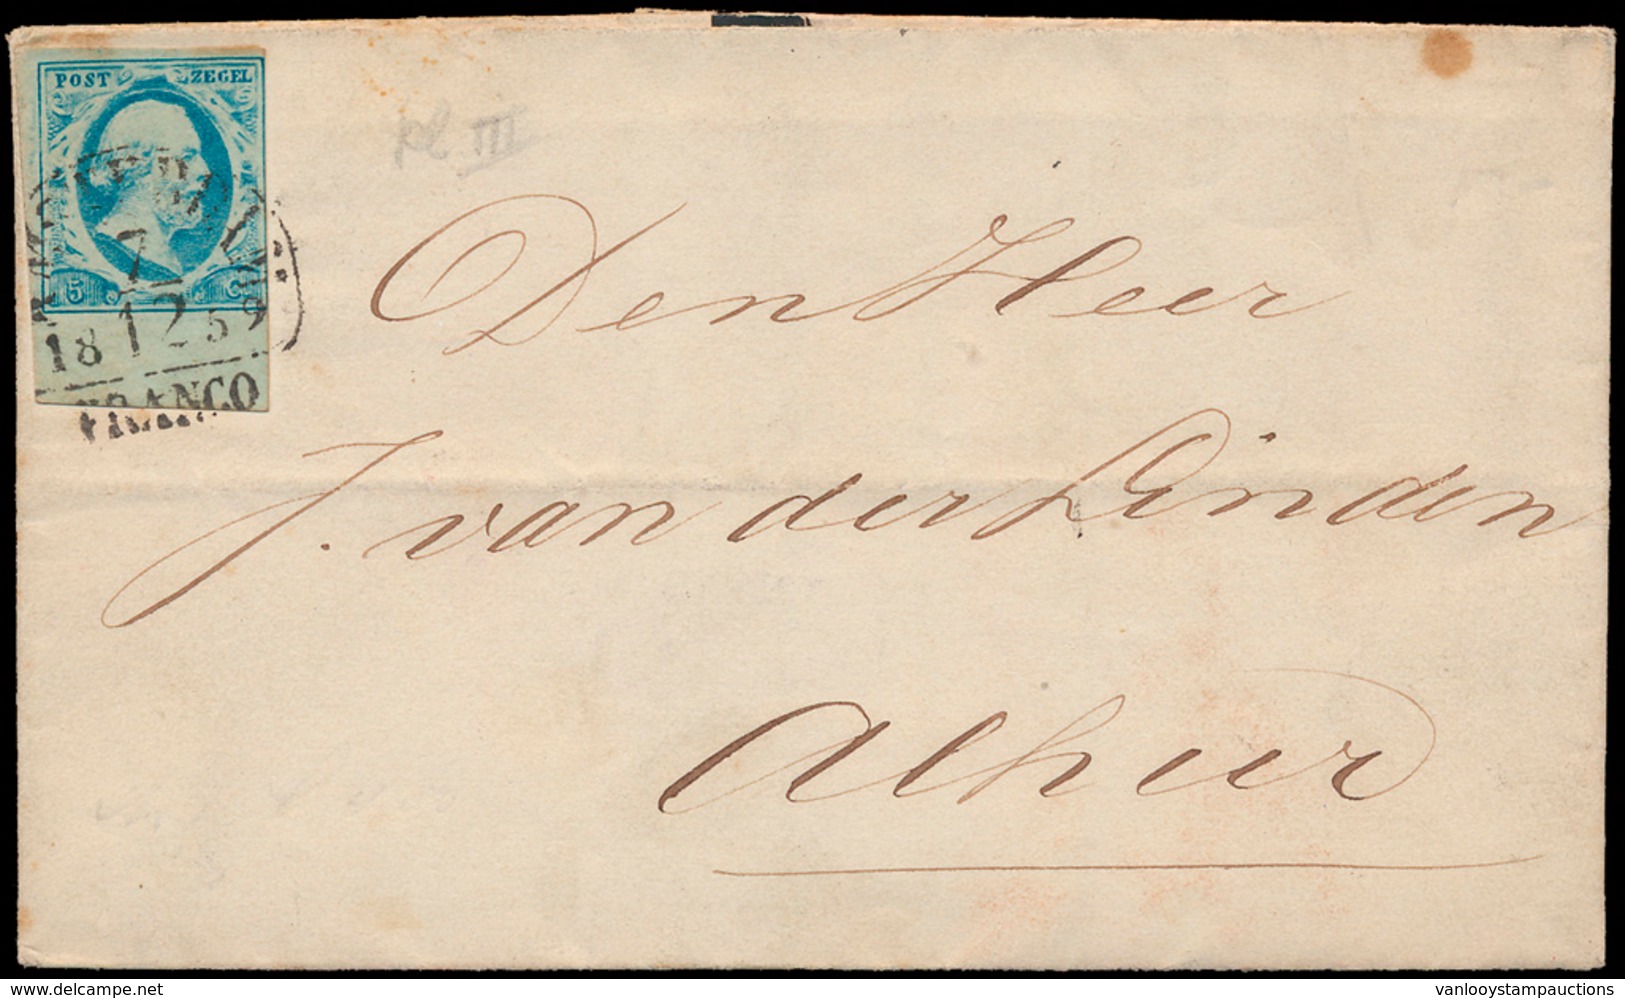 POST ZEGEL
5 C
7
18 12 59
FRANCO
pl III
Den Heer
J. van der Linden
Alhier
delcampe.net
vanlooystampauctions